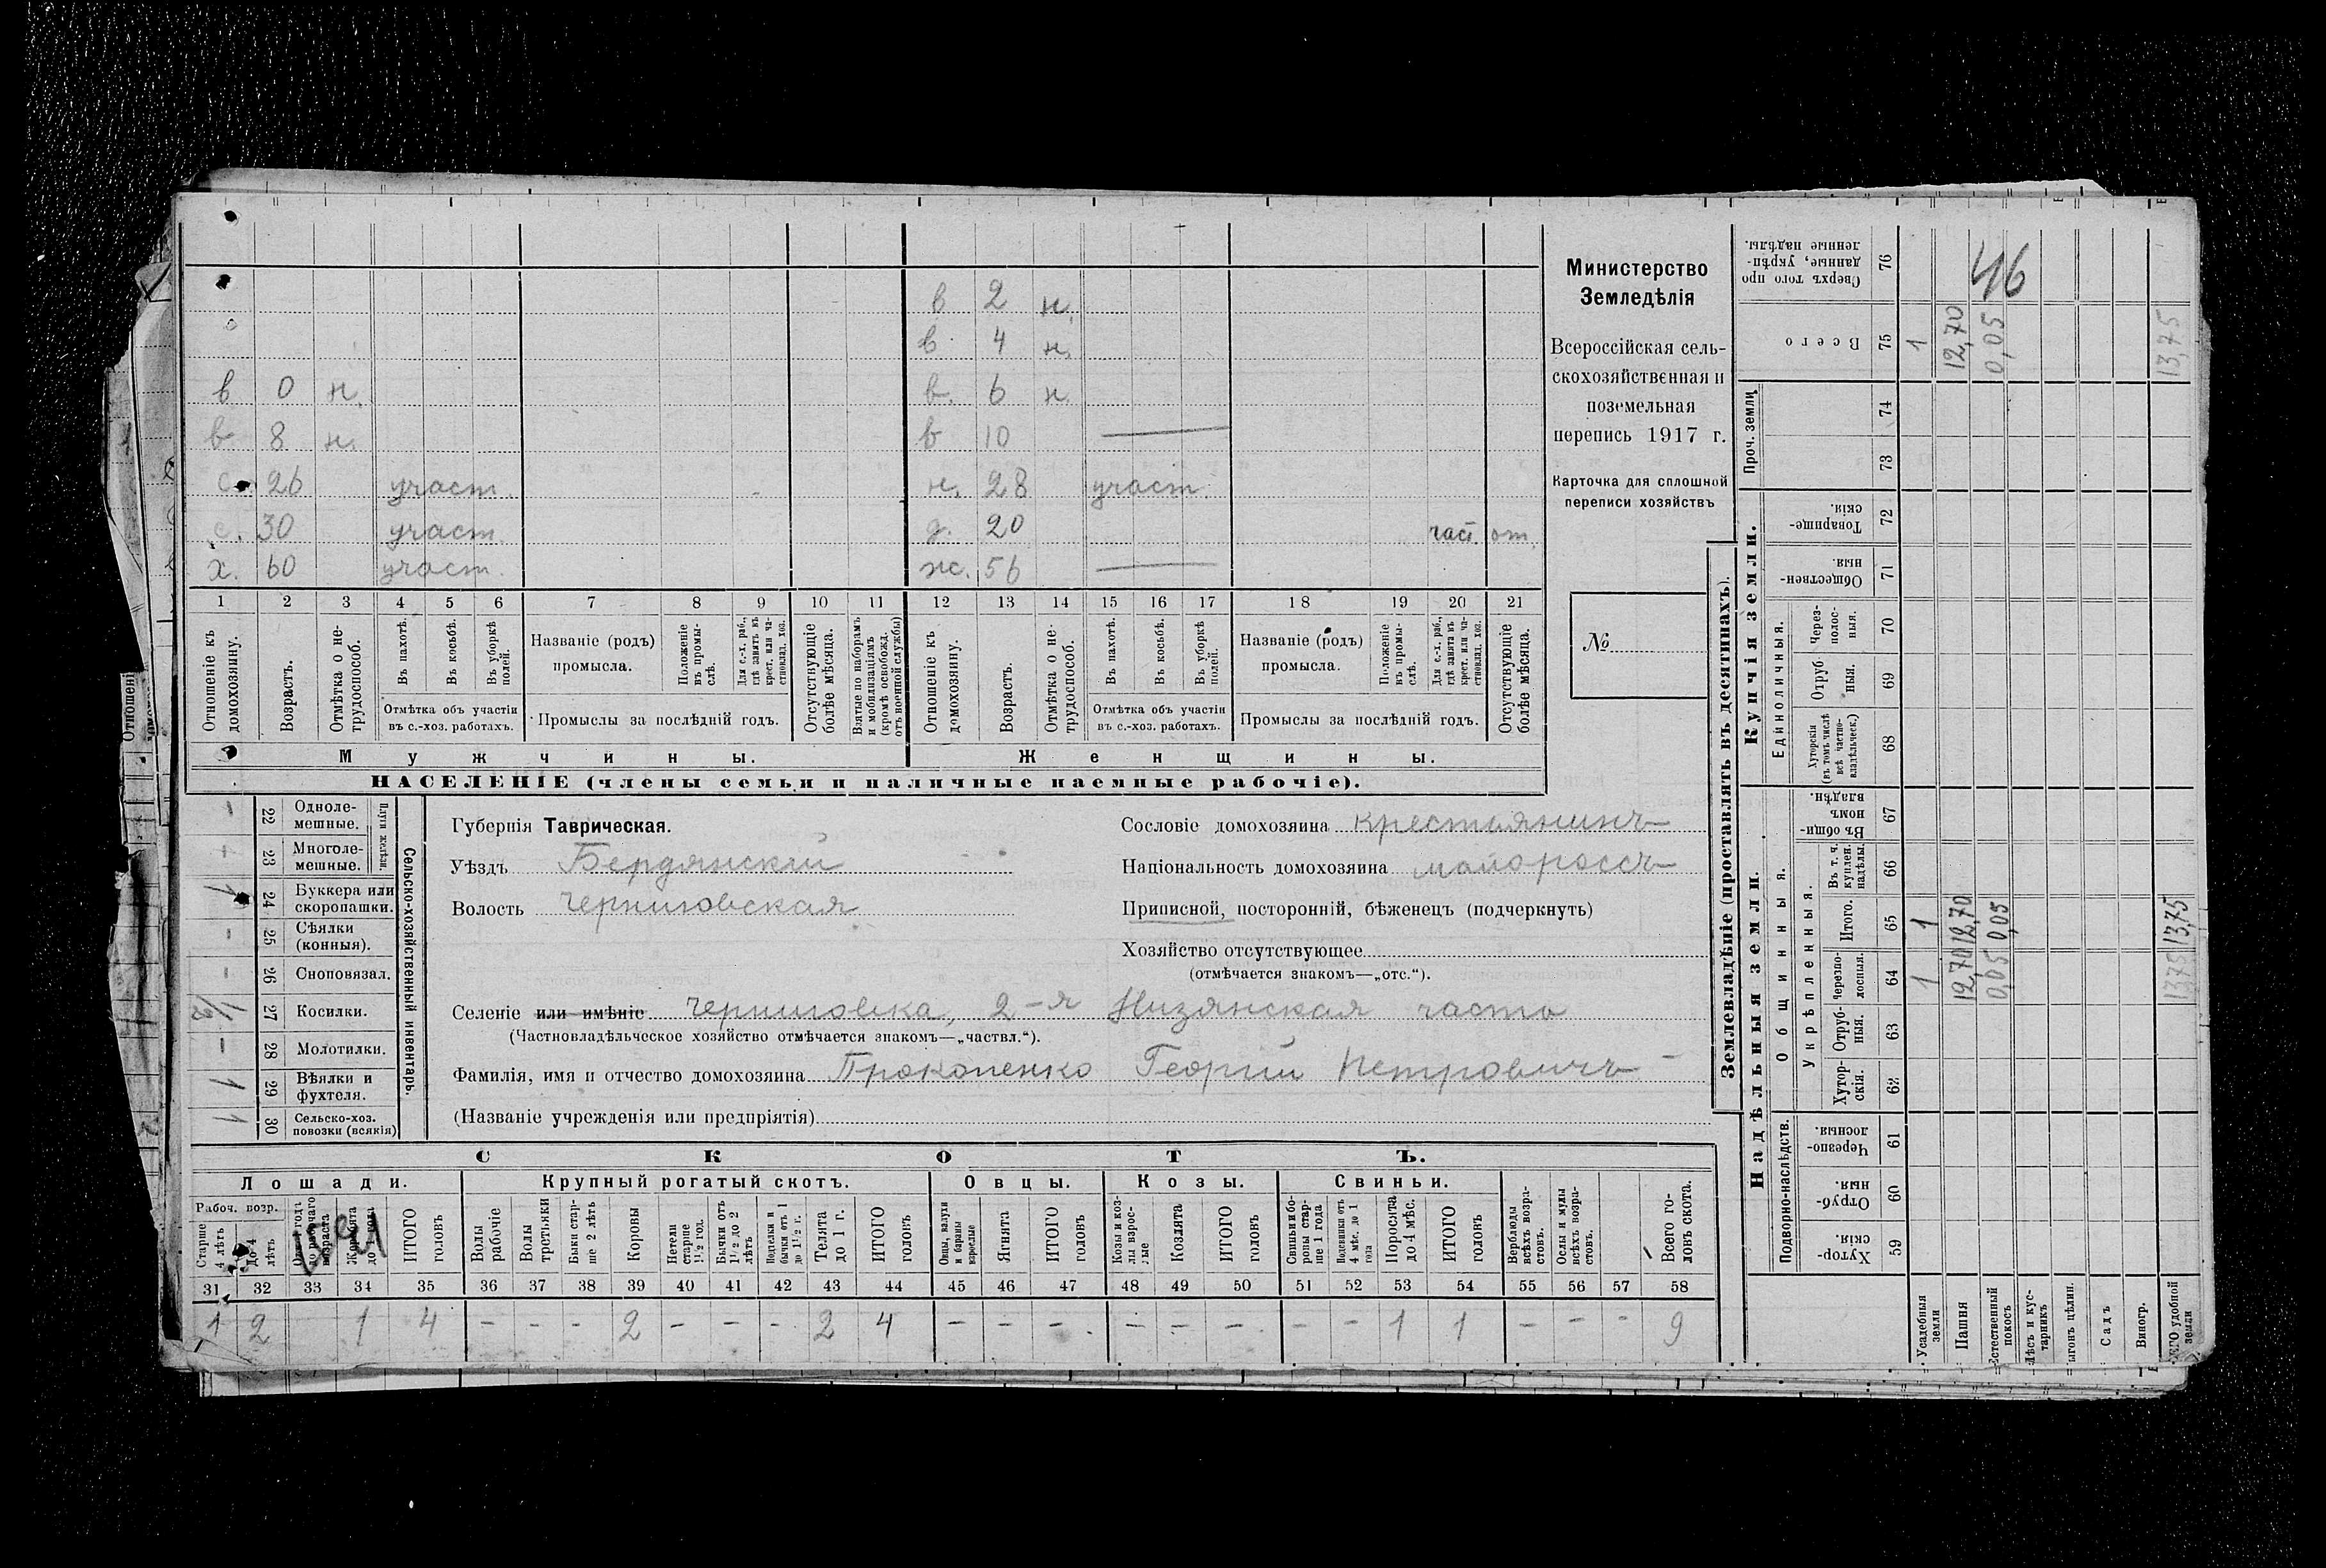 в 2 н.
в 4 н.
в 0 н. в. 6 н.
в 8 н. в 10 —
с. 26 участ. н. 28 участ.
с. 30 участ. д. 20 част. от.
х. 60 участ. ж. 56 —
1 2 3 4 5 6 7 8 9 10 11 12 13 14 15 16 17 18 19 20 21
Отношеніе къ домохозяину.
Возрастъ.
Отмѣтка о не-
трудоспособ.
Въ пахотѣ.
Въ косьбѣ.
Въ уборкѣ полей.
Отмѣтка объ участіи
въ с.-хоз. работахъ.
Названіе (родъ)
промысла.
Положеніе въ промы-
слѣ.
Для с.-х. раб., гдѣ занятъ въ крест. или ча-
стновлад. хоз.
Промыслы за послѣдній годъ.
Отсутствующіе болѣе мѣсяца.
Взятые по наборамъ и мобилизаціямъ (кромѣ освобожд. отъ военной службы)
Отношеніе къ домохозяину.
Возрастъ.
Отмѣтка о не-
трудоспособ.
Въ пахотѣ.
Въ косьбѣ.
Въ уборкѣ полей.
Отмѣтка объ участіи
въ с.-хоз. работахъ.
Названіе (родъ)
промысла.
Положеніе въ промы-
слѣ.
Для с.-х. раб., гдѣ занята въ крест. или ча-
стновлад. хоз.
Промыслы за послѣдній годъ.
Отсутствующіе болѣе мѣсяца.
Мужчины. Женщины.
НАСЕЛЕНІЕ (члены семьи и наличные наемные рабочіе).
Министерство
Земледѣлія
Всероссійская сель-
скохозяйственная и
поземельная
перепись 1917 г.
Карточка для сплошной
переписи хозяйствъ
№
Сельско-хозяйственный инвентарь.
Плуги желѣзн.
- 22 Одноле-
мешные.
- 23 Многоле-
мешные.
1 24 Буккера или
скоропашки.
- 25 Сѣялки
(конныя).
- 26 Сноповязал.
1/2 27 Косилки.
- 28 Молотилки.
1 29 Вѣялки и
фухтеля.
1 30 Сельско-хоз.
повозки (всякія)
Губернія Таврическая.
Уѣздъ Бердянскій
Волость Черниговская
Сословіе домохозяина крестьянинъ
Національность домохозяина малороссъ
Приписной, посторонній, бѣженецъ (подчеркнуть)
Хозяйство отсутствующее
(отмѣчается знакомъ—„отс.“).
Селеніе или имѣніе Черниговка, 2-я Низянская часть
(Частновладѣльческое хозяйство отмѣчается знакомъ—„частвл.“).
Фамилія, имя и отчество домохозяина Прокопенко Георгій Петровичъ
(Названіе учрежденія или предпріятія)
СКОТЪ.
Лошади. Крупный рогатый скотъ. Овцы. Козы. Свиньи.
Рабоч. возр.
Старше 4 лѣтъ
До 4 лѣтъ
Жеребята до года
ИТОГО головъ
Волы рабочіе
Волы третьяки
Быки стар-
ше 2 лѣтъ
Коровы
Нетели старше 1½ год.
Бычки отъ 1½ до 2 лѣтъ
Подтелки и бычки отъ 1 до 1½ г.
Телята до 1 г.
ИТОГО головъ
Овцы, валухи и бараны взрослые
Ягнята
ИТОГО головъ
Козы и коз-
лы взрос-
лые
Козлята
ИТОГО головъ
Свиньи и бо-
ровы стар-
ше 1 года
Подсвинки отъ 4 мѣс. до 1 года
Поросята до 4 мѣс.
ИТОГО головъ
Верблюды всѣхъ возра-
стовъ.
Ослы и мулы всѣхъ возра-
стовъ.
Всего го-
ловъ скота.
31 32 33 34 35 36 37 38 39 40 41 42 43 44 45 46 47 48 49 50 51 52 53 54 55 56 57 58
1 2 1 4 - - - 2 - - - 2 4 - - - - - - - - 1 1 - - - 9
Землевладѣніе (проставлять въ десятинахъ).
Надѣльныя земли. Купчія земли.
Подворно-наслѣдств.
Общинныя.
Укрѣпленныя.
Единоличныя.
Проч. земли
Хутор-
скія. 59
Отруб-
ныя. 60
Черезпо-
лосныя. 61
Хутор-
скія. 62
Отруб-
ныя. 63
Черезпо-
лосныя. 64
Итого. 65
Въ т. ч. куплен. надѣлы. 66
Въ общи-
номъ владѣн. 67
Хуторскія (въ томъ числѣ всѣ частно-
владѣльческ.) 68
Отруб
ныя. 69
Через-
полос-
ныя. 70
Обществен-
ныя. 71
Товарище-
скія. 72
73
74
Всего 75
Сверхъ того про
данные, укрѣп-
ленные надѣлы. 76
Усадебныя земли 1 1 1
Пашня 12,70 12,70 12,70
Естественный покосъ 0,05 0,05 0,05
Лѣсъ и кус-
тарникъ
Выгонъ цѣлин.
Садъ
Виногр.
удобной земли 13,75 13,75 13,75
46